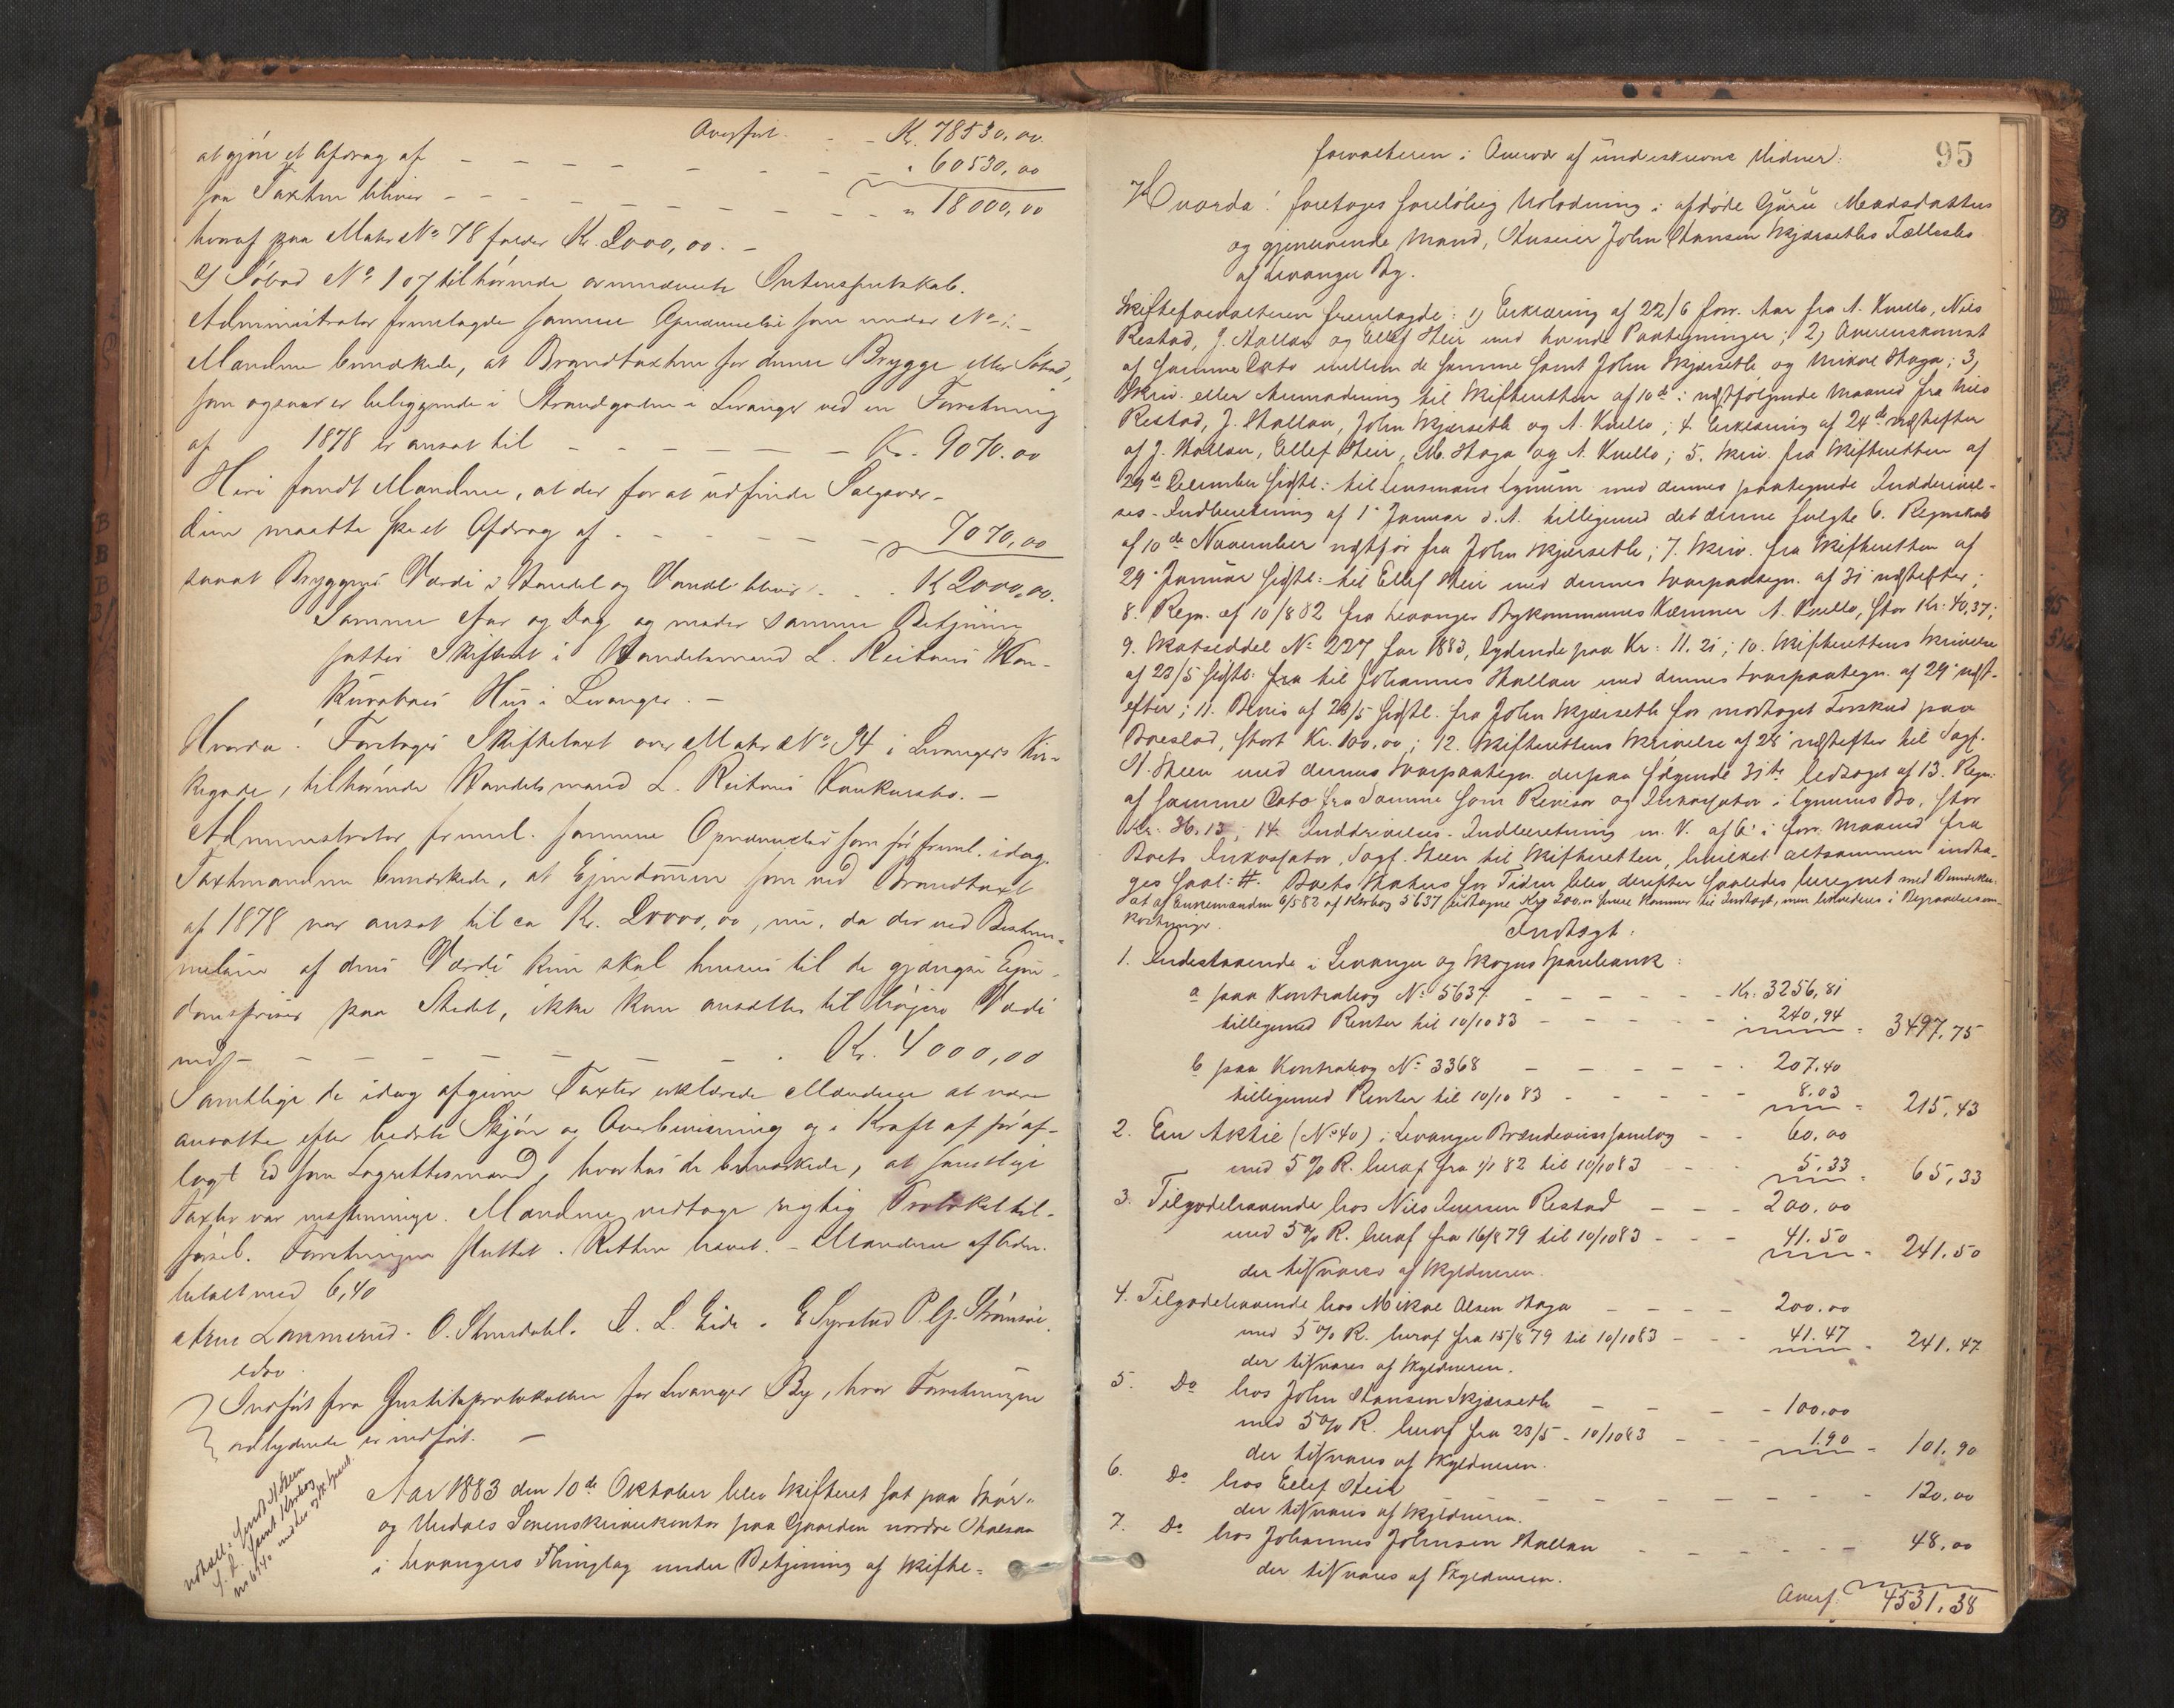 Overført - - Kr. 78530,00.
at gjøre et Afdrag af - - - - - - - - " 60530,00
saa Taxten bliver - - - - - - - - - " 18000,00
hvoraf paa Matr. No 78 falder Kr. 2000,00. -
2) Søbod No 107 tilhørende ovennævnte Interessentskab.
Administrator fremlagde samme Opnævnelse som under No 1. -
Mændene bemærkede, at Brandtaxten for denne Brygge eller Søbod,
som ogsaa er beliggende i Strandgaden i Levanger ved en Forretning
af 1878 er ansat til - - - - - - Kr. 9070.00
Heri fandt Mændene, at der for at udfinde Salgsvær-
dien maatte ske et Afdrag af - - - - - - 7070,00
saaat Bryggens Værdi i Handel og Vandel bliver . . . Kr 2000,00.
Samme Aar og Dag og under samme Betjening
sattes Skifteret i Handelsmand L. Reitans Kon-
kursboes Hus i Levanger. -
Hvorda! Foretoges Skiftetaxt over Matr. No 94 i Levangers Kir-
kegade, tilhørende Handelsmand L. Reitans Konkursbo. -
Administrator freml. samme Opnævnelse som før freml. idag.
Taxtmændene bemærkede, at Ejendommen som ved Brandtaxt
af 1878 var ansat til ca Kr. 20000,00, nu, da der ved Bestem-
melsen af dens Værdi kun skal hensees til de gjængse Ejen-
domspriser paa Stedet, ikke kan ansættes til højere Værdi
end - - - - - - - - Kr. 4000,00
Samtlige de idag afgivne Taxter erklærede Mændene at være
ansatte efter bedste Skjøn og Overbevisning og i Kraft af før af-
lagt Ed som Lagrettesmænd, hvorhos de bemærkede, at samtlige
Taxter var enstemmige. Mændene vedtoge rigtig Protokoltil-
førsel. Forretningen sluttet. Retten hævet. - Mændene af Adm.
betalt med 6,40
Arne Lommerud. O. Strindahl. A. L. Eide. E Syrstad P. G. Strømsøe.
edsv.
Indført fra Gjestebsprotokollen for Levanger By, hvor Forretningen
ordlydende er indført. -
Aar 1883 den 10de Oktober blev Skifteret sat paa Stør-
og Værdals Sorenskriverkontor paa Gaarden nordre Halsan
i Levangers Thinglag under Betjening af Skifte-
95
forvalteren i Overvær af underskrevne Vidner:
Hvorda! foretages foreløbig Udlodning i afdøde Guru Madsdatters
og gjenlevende Mand, Huseier John Hansen Skjørseths Fællesbo
af Levanger By.
Skifteforvalteren fremlagde: 1) Erklæring af 22/6 forr. Aar fra A. Kvello, Nils
Restad, J. Hallan og Ellef Stein med hvende Paategninger; 2) Overenskomst
af samme Dato mellem de samme samt John Skjørseth og Mikal Haga; 3)
Skriv. eller Anmodning til Skifteretten af 10de i næstfølgende Maaned fra Nils
Restad, J. Hallan, John Skjørseth og A. Kvello; 4. Erklæring af 24de næstefter
af J. Hallan, Ellef Stein, M. Haga og A. Kvello; 5. Skriv. fra Skifteretten af
29de December sidstl. til Lensmand Lynum med dennes paategnede Inddrivel-
ses-Indberetning af 1' Januar d. A. tilligemed det denne fulgte 6. Regnskab
af 10de November næstfør fra John Skjørseth; 7. Skriv. fra Skifteretten af
29' Januar sidstl. til Ellef Stein med dennes Svarpaategn. af 31' næstefter;
8. Regn. af 10/8 82 fra Levanger Bykommunes Kæmner A. Kvello, stor Kr: 40,37;
9. Skatseddel No 227 for 1883, lydende paa Kr: 11.21; 10. Skifterettens Skrivelse
af 23/5 sidstl. fra til Johannes Hallan med dennes Svarpaategn. af 29' næst-
efter; 11. Bevis af 23/5 sidstl. fra John Skjørseth for modtaget Forskud paa
Boeslod, stort Kr. 100,00; 12. Skifterettens Skrivelse af 28' næstefter til Sagf.
St. Steen med dennes Svarpaategn. derpaa følgende 31te ledsaget af 13. Regn.
af samme Dato fra Samme som Revisor og Inkassator i Lynums Bo, stor
Kr. 36,13; 14. Inddrivelses-Indberetning m. V. af 6' i forr. Maaned fra
Boets Inkassator, Sagf. Steen til Skifteretten, hvilket altsammen indta-
ges saal: #. Boets Status for Tiden blev derefter saaledes beregnet med Bemærkn.
at af Enkemanden 6/5 82 af Kbog 5637 udtagne Kr 200,00 senere kommer til Indtægt, men likvideres i Begravelsesom-
kostninger.
Indtægt:
1. Indestaaende i Levanger og Skognes Sparebank:
a paa Kontrabog No 5637 - - - - - Kr. 3256,81
tilligemed Renter til 10/10 83 - - - - - 240,94 = 3497,75
b paa Kontrabog No 3368 - - - - . 207.40
tilligemed Renter til 10/10 83 - - - - - 8.03 = 215,43
2. En Aktie (No 40) i Levanger Brændeviinssamlag - - 60,00
med 5 % R. heraf fra 1/1 82 til 10/10 83 - - 5.33 = 65,33
3. Tilgodehavende hos Nils Iversen Restad - - - 200.00
med 5 % R. heraf fra 16/8 79 til 10/10 83 - - - 41.50 = 241.50
der tilsvares af Skyldneren.
4. Tilgodehavende hos Mikal Olsen Haga - - - - 200.00
med 5 % R. heraf fra 15/8 79 til 10/10 83 - - - 41.47 = 241.47
der tilsvares af Skyldneren.
5. Do hos John Hansen Skjørseth - - - - 100.00
med 5 % R. heraf fra 23/5 - 10/10 83 - - - 1.90 = 101,90
der tilsvares af Skyldneren.
6. Do hos Ellef Stein - - - - - - - - - 120,00
der tilsvares af Skyldneren.
7. Do hos Johannes Johnsen Hallan - - - - - - 48,00
der tilsvares af Skyldneren.
Overf. 4531,38